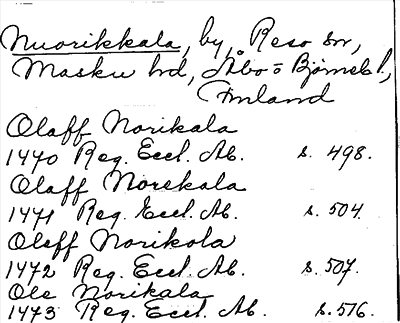 Nuorikkala, by, Reso sn,
Masku hd, Åbo o Björneb l.,
Finland
Olaff Norikala
1470 Reg. Eccl. Ab. s. 498.
Olaff Norekala
1471 Reg. Eccl. Ab. s. 504.
Oleff Norikola
1472 Reg. Eccl. Ab. s. 507.
Ole Norikala
1473 Reg. Eccl. Ab. s. 516.